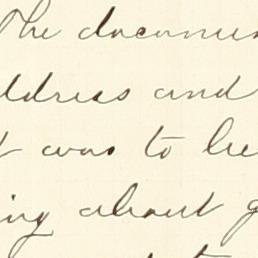 The documen
ddress and
t was to be
ing about g